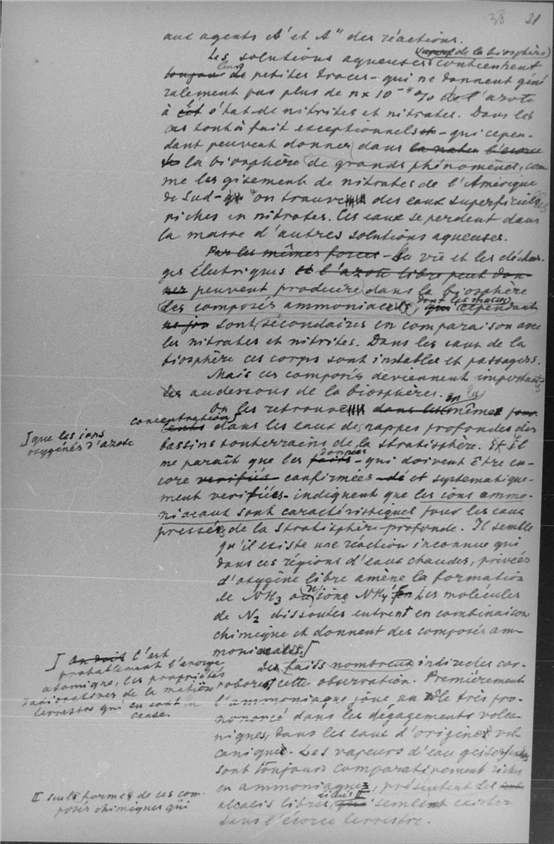 38 21
aux agents A' et A" des réactions.
(de la biosphère)
Les solutions aqueuses contiennent
de petites traces - qui ne donnent géné
ralement pas plus de n x 10 % de l'azote
à état de nitrites et nitrates. Dans les
cas tout à fait exceptionnels - qui cepen-
dant peuvent donner dans
la biosphère de grands phénomènes, com
me les gisements de nitrates de l'Amérique
de Sud - on trouve des eaux superficielles
riches en nitrates. Ces eaux se perdent dans
la masse d'autres solutions aqueuses.
Par les mêmes forces - la vie et les déchar-
ges électriques et l'azote libre peut don-
ner peuvent produire dans la biosphère
les composés ammoniacals, dont les masses cependant
sont secondaires en comparaison avec
les nitrates et nitrites. Dans les eaux de la
biosphère ces corps sont instables et passagers.
Mais ces composés deviennent importants
au dessous de la biosphère.
On les retrouve dans même
concentration
dans les eaux de nappes profondes des
bassins souterrains de la stratisphère. Il
que les ions
oxygénés d'azote
me paraît que les données faits - qui doivent être en-
core vérifiés confirmées et systématique-
ment vérifiées - indiquent que les ions ammo-
niacaux sont caractéristiques pour les eaux
pressées de la stratisphère profonde. Il semble
qu'il existe une réaction inconnue qui
dans ces régions d'eaux chaudes, privées
d'oxygène libre amène la formation
de NH3 ou ions NH4 Les molécules
de N2 dissoutes entrent en combinaison
chimique et donnent des composés am-
moniacals.
c'est
probablement l'énergie
atomique, les propriétés
radioactives de la matière
terrestres qui en sont la
cause.
Les faits nombreux indirectes cor-
roborent cette observation. Premièrement
l'ammoniaque joue un rôle très pro-
noncé dans les dégagements volca
niques, dans les eaux d'origine vol-
canique. Les vapeurs d'eau
sont toujours comparativement riches
en ammoniaque, présentent les
II seuls formes de ces com-
posés chimiques qui
alcalis libres, semblent exister
dans l'écorce terrestre.